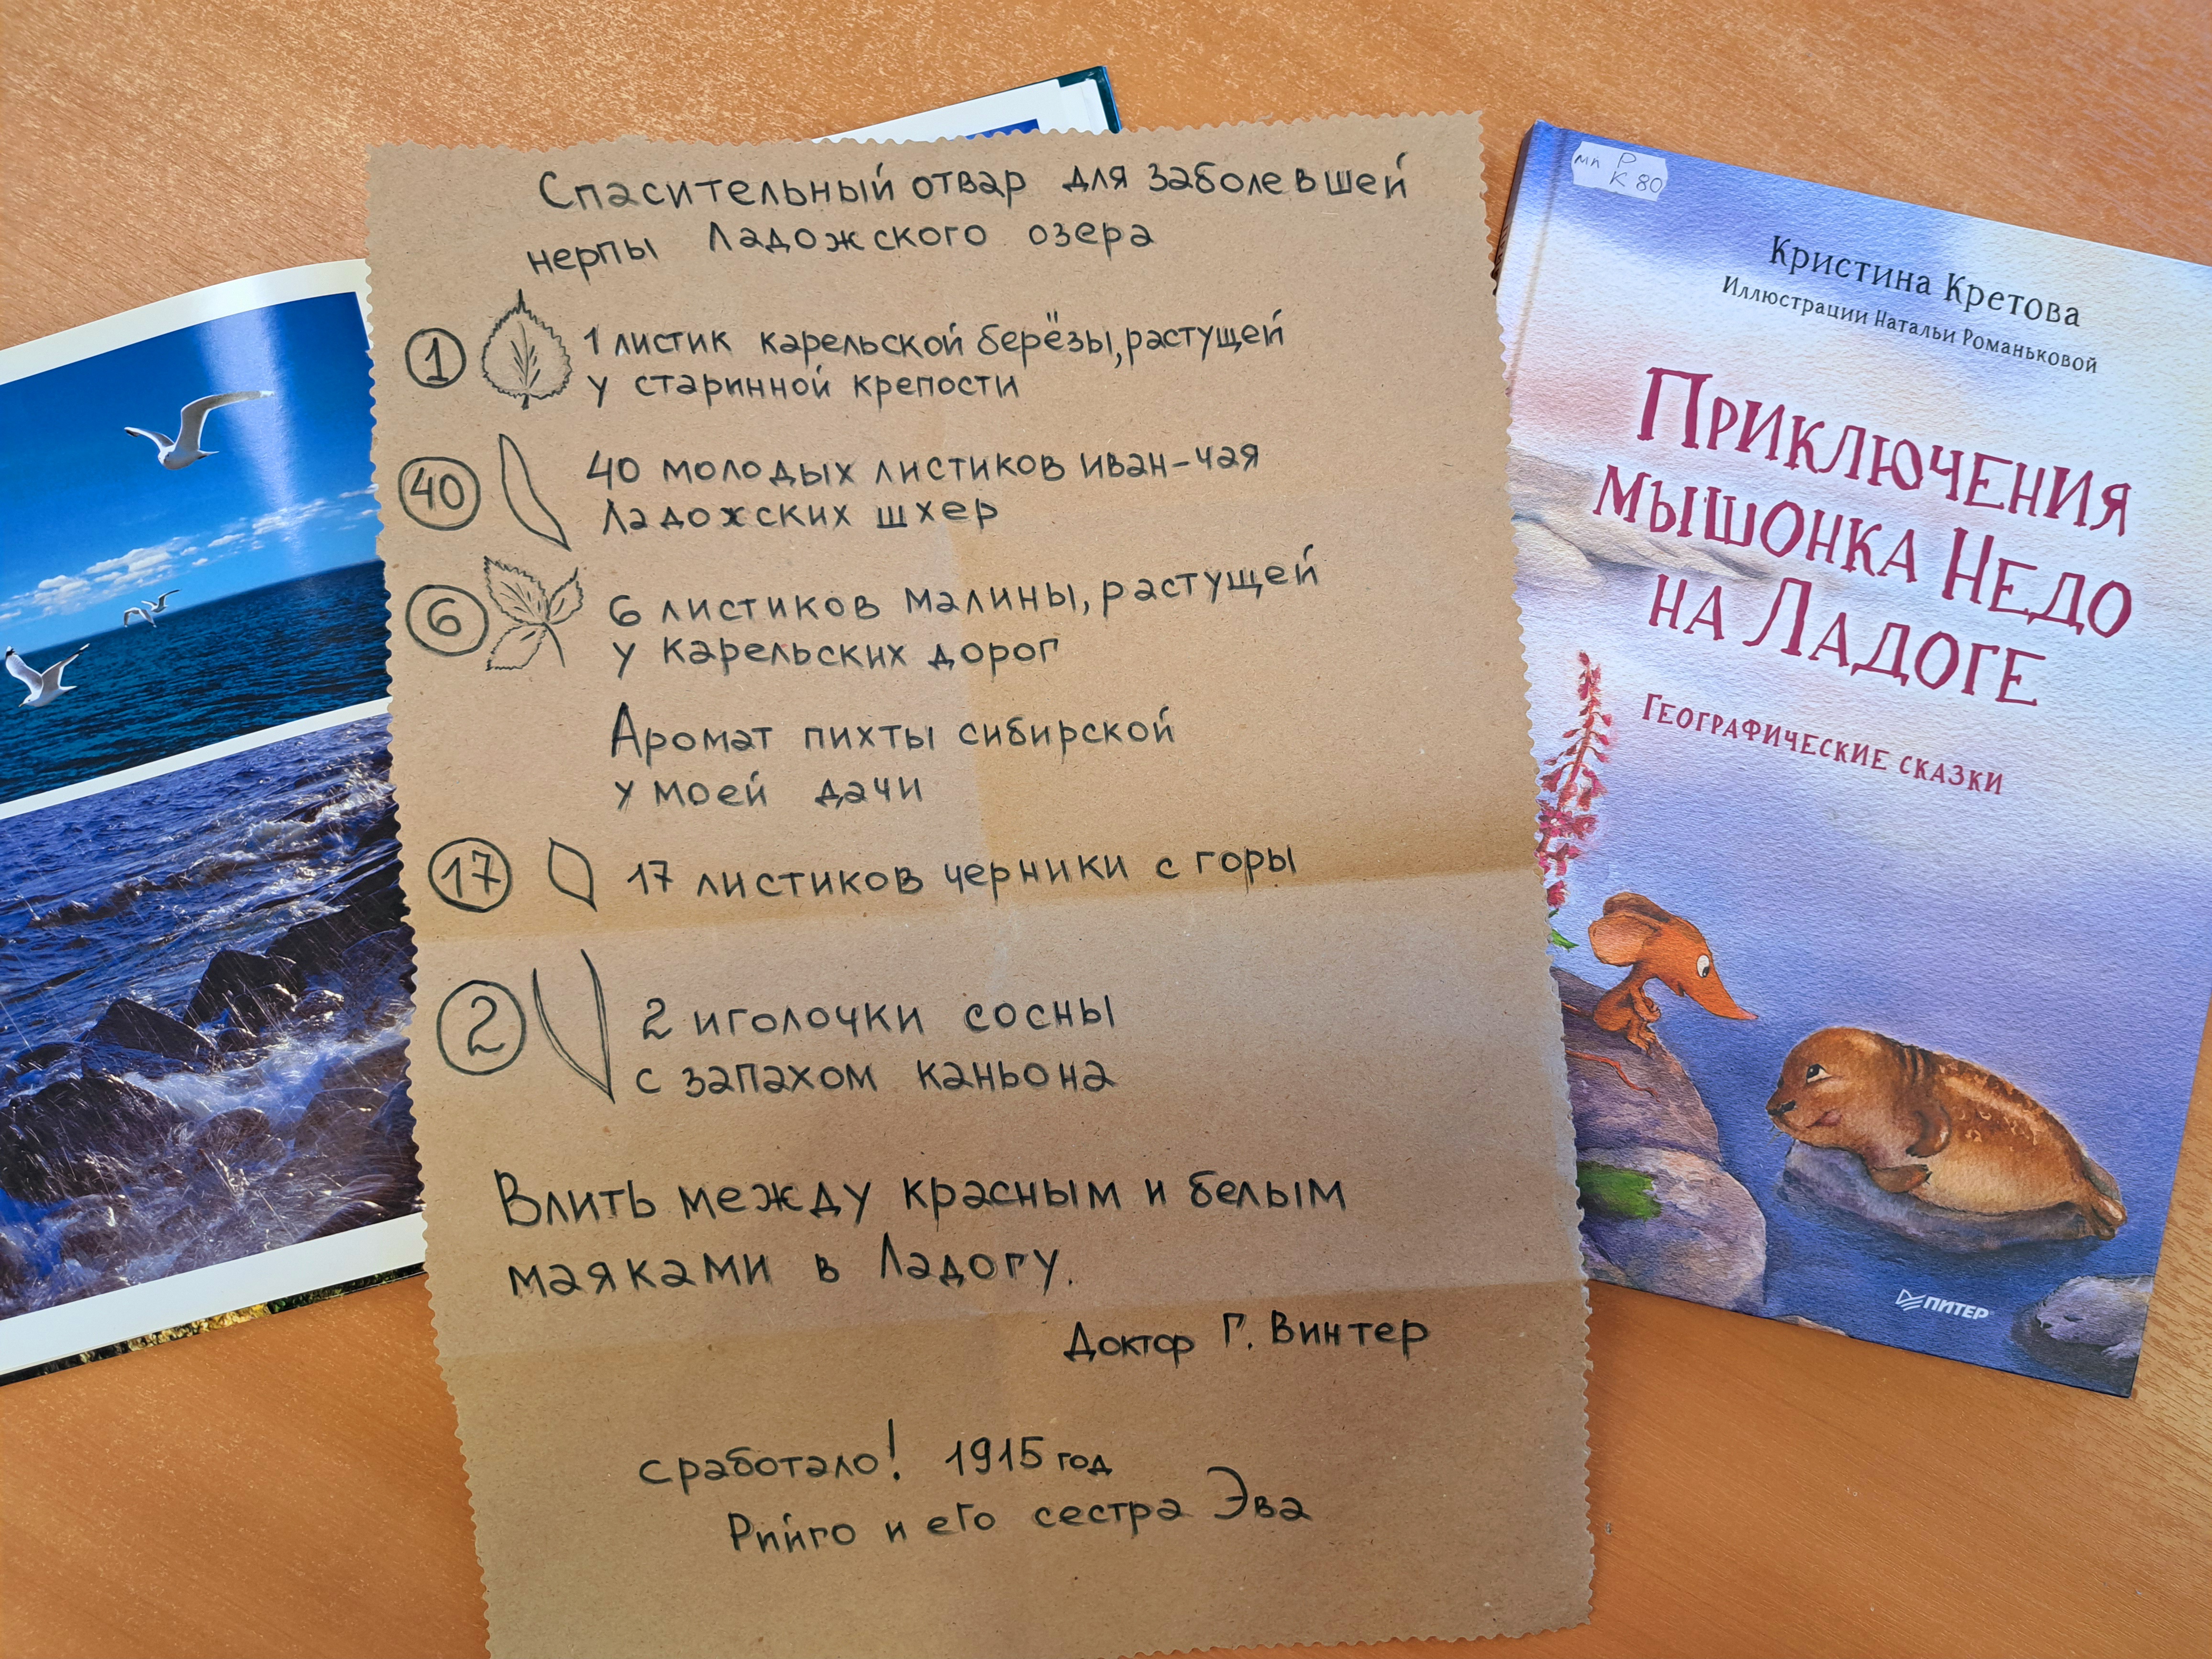 Спасительный отвар для заболевшей
нерпы Ладожского озера
1
1 листик карельской берёзы, растущей
у старинной крепости
40
40 молодых листиков иван-чая
Ладожских шхер
6
6 листиков малины, растущей
у карельских дорог
Аромат пихты сибирской
у моей дачи
17
17 листиков черники с горы
2
2 иголочки сосны
с запахом каньона
Влить между красным и белым
маяками в Ладогу.
Доктор Г. Винтер
сработало! 1915 год
Рийго и его сестра Эва
мп Р
К 80
Кристина Кретова
Иллюстрации Натальи Романьковой
Приключения
мышонка Недо
на Ладоге
Географические сказки
ПИТЕР